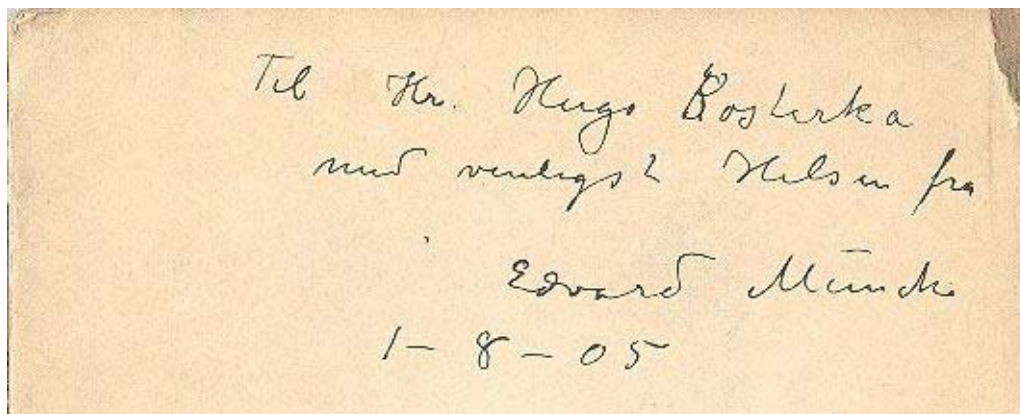 Til Hr. Hugo Kosterka
med venligst Hilsen fra
Edvard Munch
1 – 8 – 05